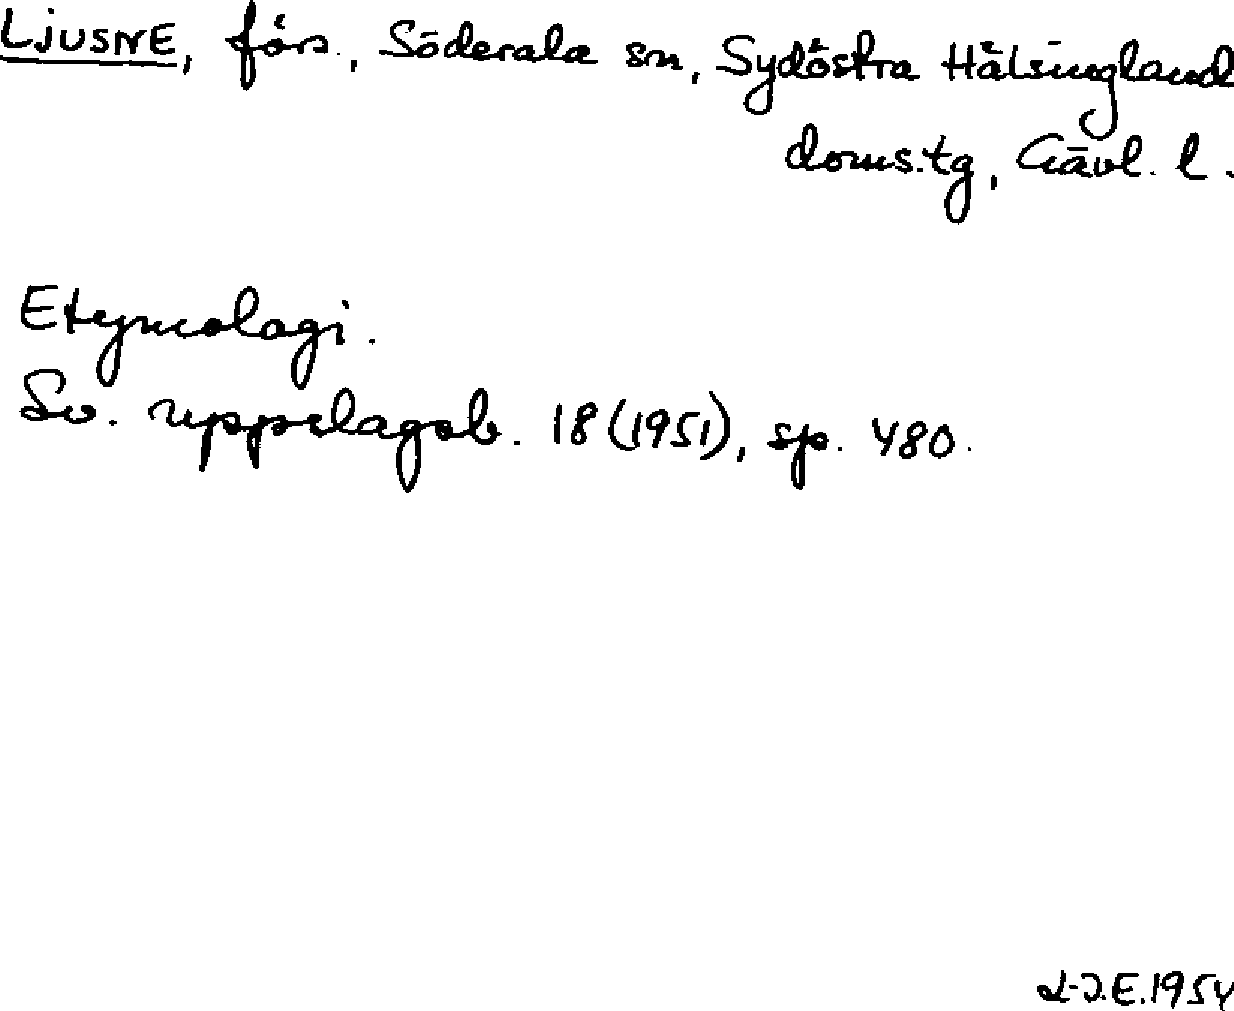 LJUSNE, förs., Söderala sn, Sydöstra Hälsingland
doms.tg, Gävl. l.
Etymologi.
Sv. uppslagsb. 18 (1951), sp. 480.
L-J.E. 1954